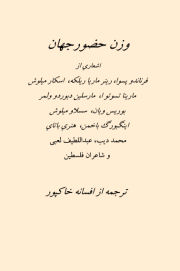 وزن حضور جهان
اشعاری از
فرناندو پسوا، رینر ماریا ریلکه، اسکار میلوش
مارینا تسوتوا، مارسلین دبوردو ولمر
بوریس ویان، چسلاو میلوش
اینگبورگ باخمن، هنری باتای
محمد دیب، عبداللطیف لعبی
و شاعران فلسطین
ترجمه از افسانه خاکپور